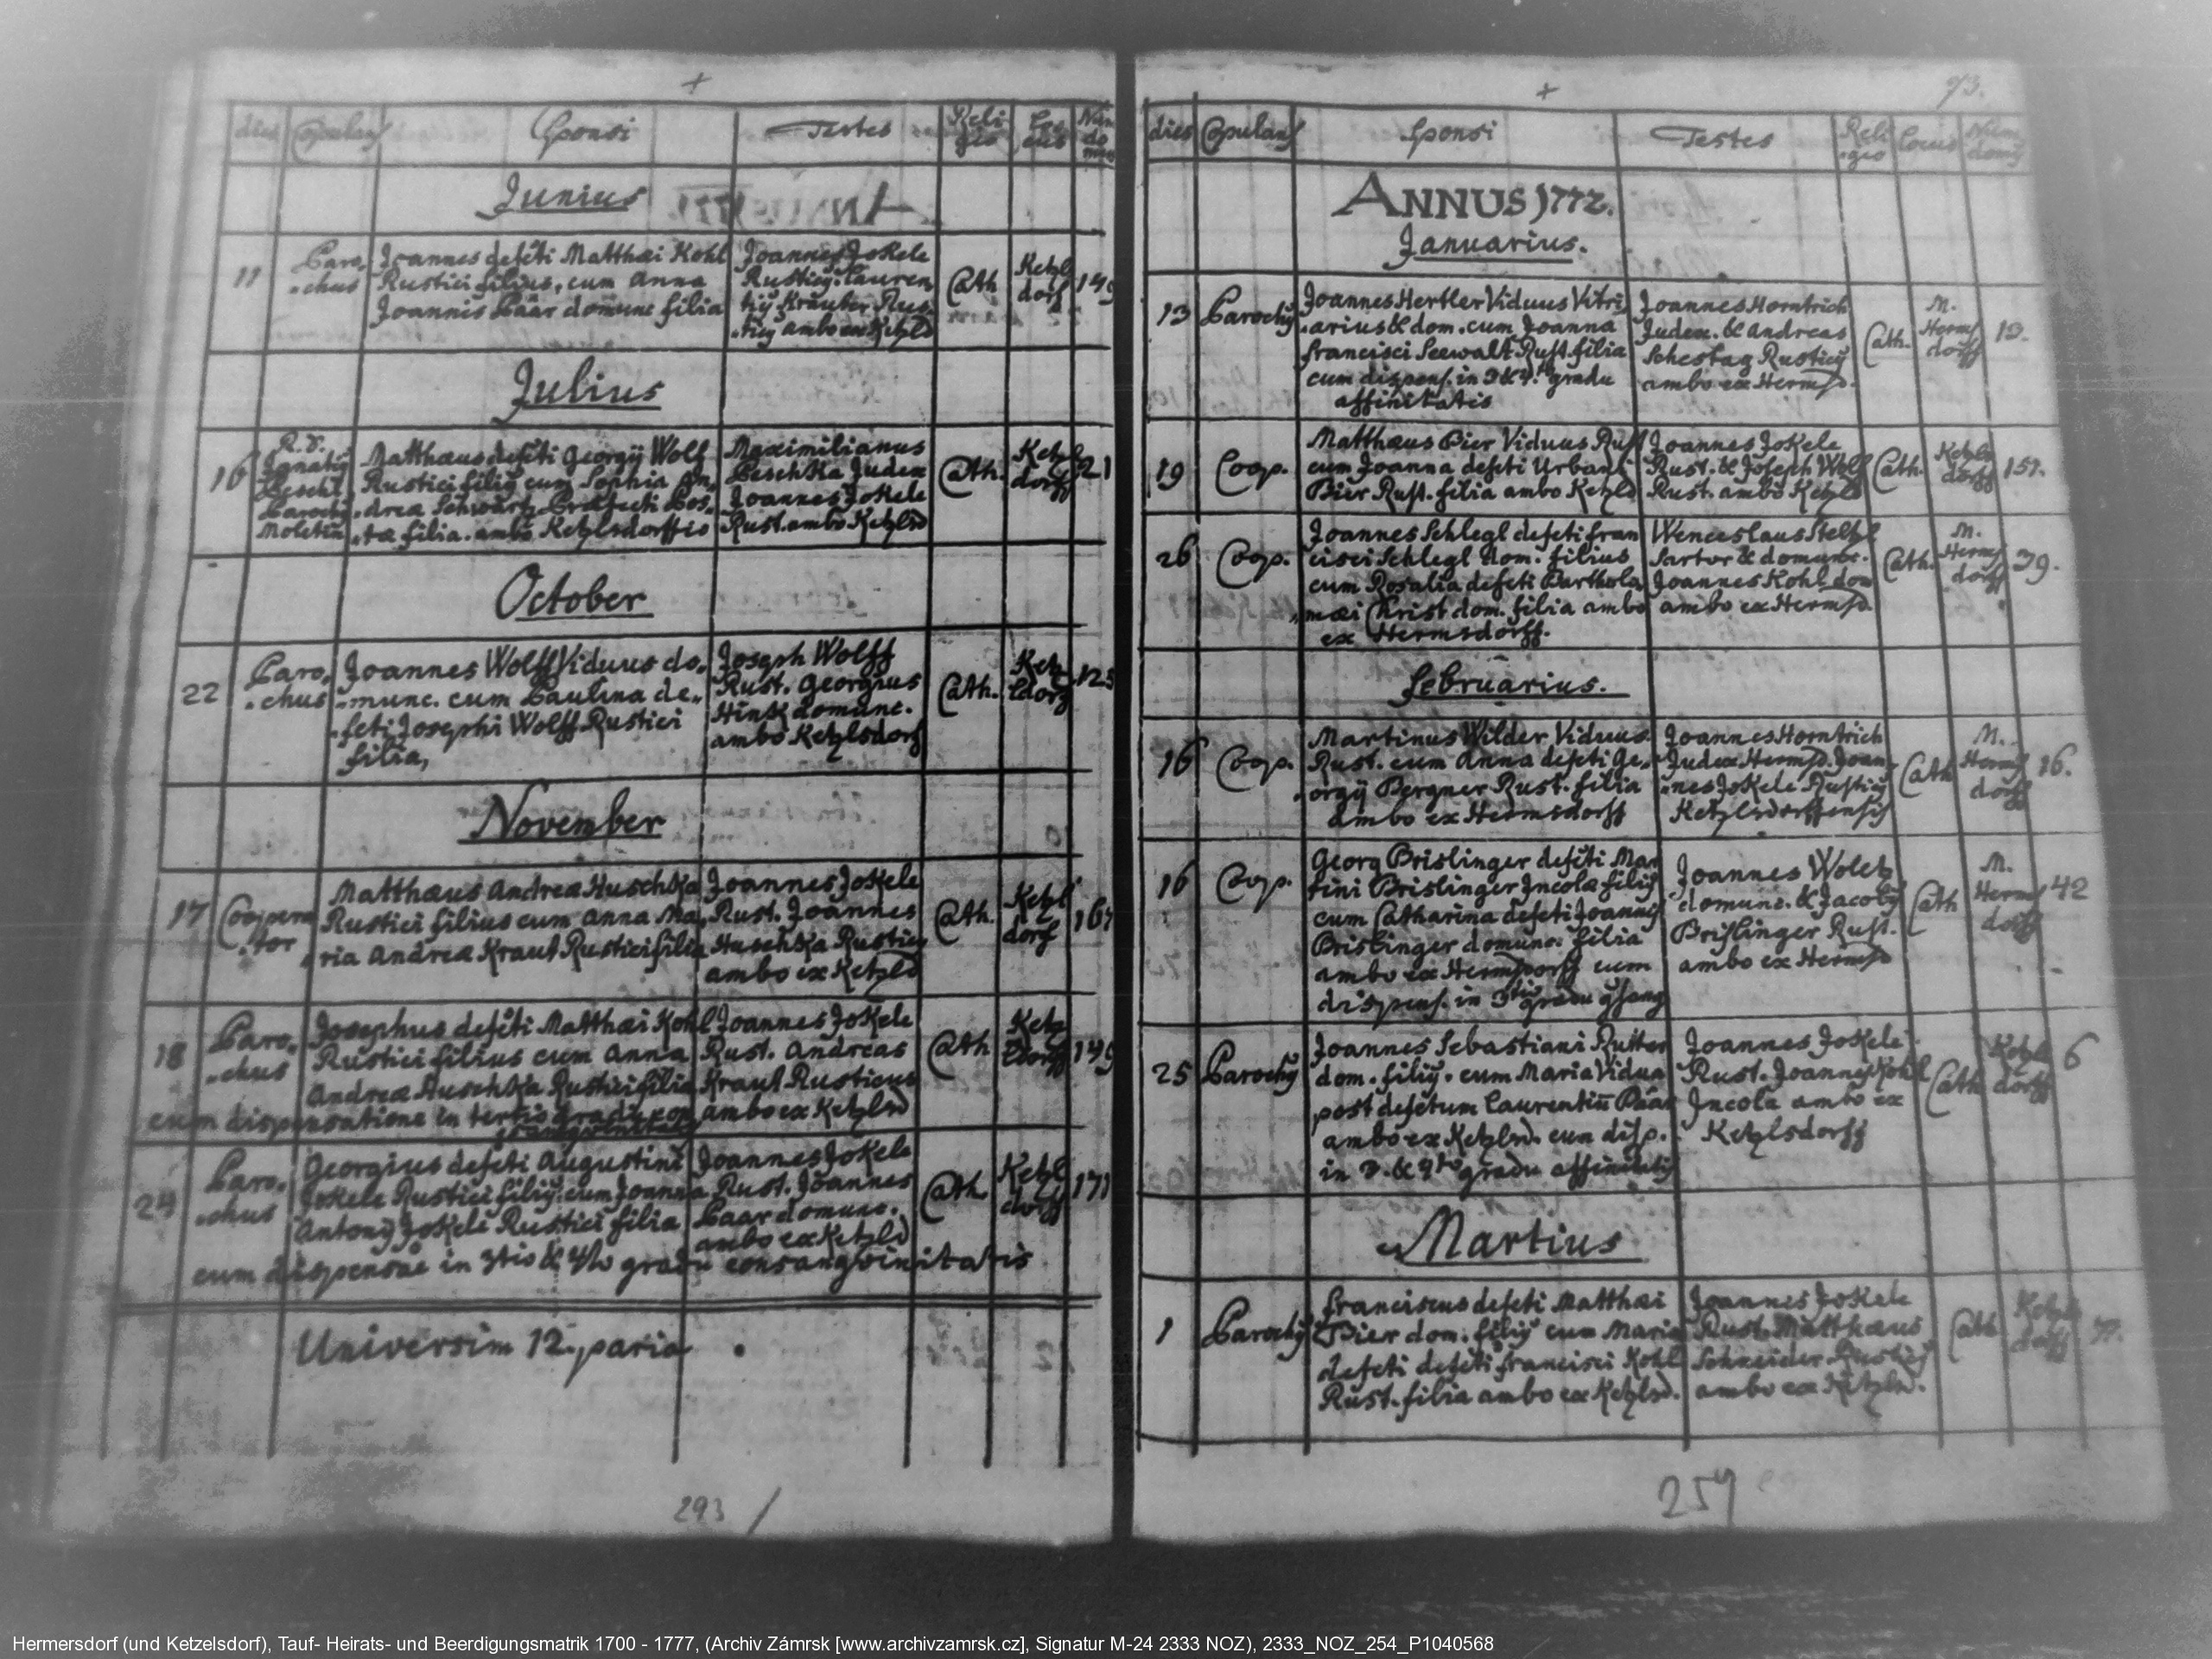 dies Copulans Sponsi Testes Reli gio Lo cus Num do mus
Junius
11
Paro, chus
Joannes defcti Matthæi Kohl
Rustici filius, cum Anna
Joannis Päar domunc filia
Joannes Jokele
Rusticy. Lauren,
tiy Krauter Rus,
ticy ambo ex Ketzlsd
Cath
Ketzl dorf
149
Julius
16
R. D.
Ignatiy
Peschl
Parochy
Moletin
Matthæus defcti Georgy Wolf
Rustici filiy cum Sophia An,
dreæ Schwartz Præfecti Pos,
tæ filia. ambo Ketzlsdorffio
Maximilianus
Peschka Judex
Joannes Jokele
Rust. ambo Ketzlsd
Cath.
Ketzl dorff
21
October
22
Paro, chus
Joannes Wolff Viduus do,
munc. cum Paulina de,
fcti Josephi Wolff Rustici
filia,
Joseph Wolff
Rust. Georgius
Hinsk domunc.
ambo Ketzlsdorf
Cath.
Ketz ldorf
123
November
17
Coopera tor
Matthæus Andreæ Huschka
Rustici filius cum Anna Ma,
ria Andreæ Kraul Rustici filia
Joannes Jokele
Rust. Joannes
Huschka Rusticy
ambo ex Ketzlsd
Cath.
Ketzl dorf
167
18
Paro, chus
Josephus defcti Matthæi Kohl
Rustici filius cum Anna
Andreæ Huschka Rustici filia
cum dispensatione in tertio gradu con
sangvinitatis
Joannes Jokele
Rust. Andreas
Kraul Rusticus
ambo ex Ketzlsd
Cath
Ketz ldorff
149
24
Paro, chus
Georgius defcti Augustini
Jokele Rustici filiy. cum Joanna
Antony Jokele Rustici filia
cum dispensae in 3tio & 4to gradu consangvinitatis
Joannes Jokele
Rust. Joannes
Paar domunc.
ambo ex Ketzlsd
Cath.
Ketzl dorff
171
Universim 12. paria.
293 /
93.
dies Copulans Sponsi Testes Reli gio Locus Num domus
ANNUS 1772.
Januarius.
13
Parochy
Joannes Hertler Viduus Vitri,
arius & dom. cum Joanna
Francisci Seewalt Rust. filia
cum dispens. in 3 & 4to gradu
affinitatis
Joannes Horntrich
Judex. & Andreas
Schestag Rusticy
ambo ex Hermsd.
Cath.
M. Herms dorff
13.
19
Coop.
Matthæus Bier Viduus Rust
cum Joanna defcti Urbani
Bier Rust. filia ambo Ketzlsd
Joannes Jokele
Rust. & Joseph Wolf
Rust. ambo Ketzlsd
Cath.
Ketzls dorff
151.
26
Coop.
Joannes Schlegl defcti Fran
cisci Schlegl dom. filius
cum Rosalia defcti Bartholo,
mæi Christ dom. filia ambo
ex Hermsdorff.
Wenceslaus Steltzl
Sartor & domunc.
Joannes Kohl dom
ambo ex Hermsd.
Cath.
M. Herms dorff
39.
Februarius.
16
Coop.
Martinus Wilder Viduus
Rust. cum Anna defcti Ge,
orgy Bergner Rust. filia
ambo ex Hermsdorff
Joannes Horntrich
Judex Hermsd. Joan,
nes Jokele Rusticy
Ketzlsdorffensis
Cath
M. Herms dorff
16.
16
Coop.
Georg Brislinger defcti Mar
tini Brislinger Incolæ filiy
cum Catharina defcti Joannis
Brislinger domunc. filia
ambo ex Hermsdorff cum
dispens. in 3tio gradu
Joannes Woletz
domunc. & Jacoby
Brislinger Rust.
ambo ex Hermsd
Cath
M. Herms dorff
42
25
Parochy
Joannes Sebastiani Rutter
dom. filiy. cum Maria Vidua
post defctum Laurentium Päar
ambo ex Ketzlsd. cum disp.
in 3. & 4to gradu affinitatis
Joannes Jokele
Rust. Joannes Kohl
Incola ambo ex
Ketzlsdorff
Cath
Ketzls dorff
6
Martius
1
Parochy
Franciscus defcti Matthæi
Bier dom. filiy cum Maria
defcti defcti Francisci Kohl
Rust. filia ambo ex Ketzlsd.
Joannes Jokele
Rust. Matthæus
Schneider Rusticy
ambo ex Ketzlsd.
Cath
Ketzls dorff
259
Hermersdorf (und Ketzelsdorf), Tauf- Heirats- und Beerdigungsmatrik 1700 - 1777, (Archiv Zámrsk [www.archivzamrsk.cz], Signatur M-24 2333 NOZ), 2333_NOZ_254_P1040568